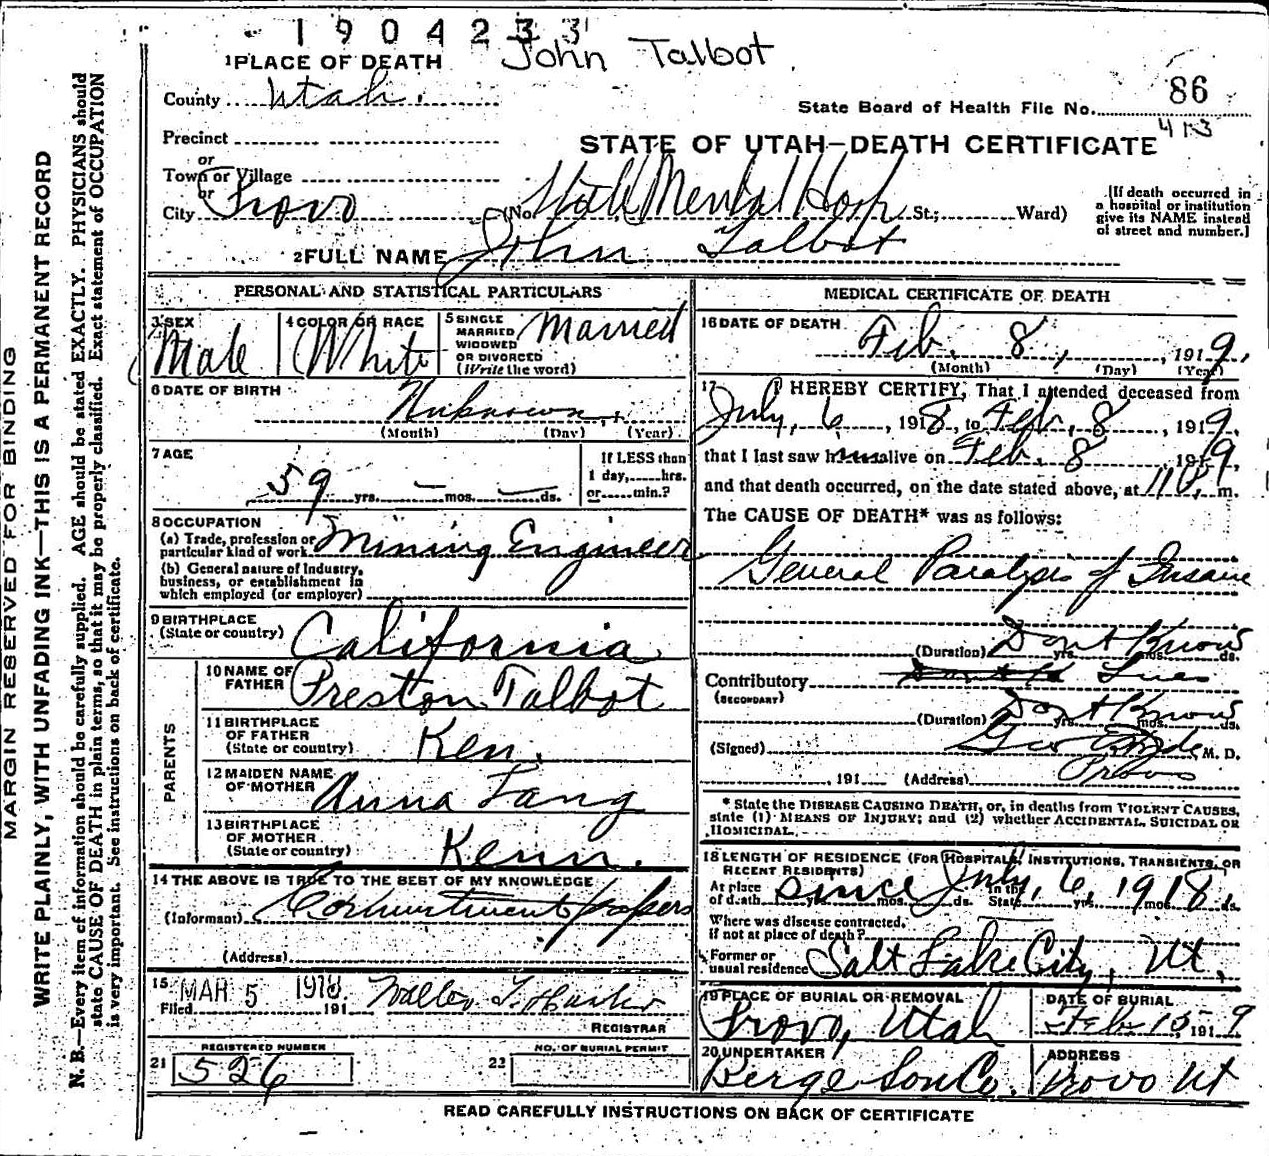 1904233
John Talbot
1 PLACE OF DEATH
County Utah.
State Board of Health File No. 86
413
Precinct
STATE OF UTAH—DEATH CERTIFICATE
or
Town or Village
or
City Provo (No. State Mental Hosp St.; Ward)
[If death occurred in
a hospital or institution
give its NAME instead
of street and number.]
2 FULL NAME John Talbot
PERSONAL AND STATISTICAL PARTICULARS
3 SEX
Male
4 COLOR OR RACE
White
5 SINGLE
MARRIED
WIDOWED
OR DIVORCED
(Write the word)
Married
6 DATE OF BIRTH
Unknown
(Month) (Day) (Year)
7 AGE
59 yrs. — mos. — ds.
If LESS than
1 day, hrs.
or min.?
8 OCCUPATION
(a) Trade, profession or
particular kind of work Mining Engineer
(b) General nature of Industry,
business, or establishment in
which employed (or employer)
9 BIRTHPLACE
(State or country) California
PARENTS
10 NAME OF
FATHER Preston Talbot
11 BIRTHPLACE
OF FATHER
(State or country) Ken.
12 MAIDEN NAME
OF MOTHER Anna Lang
13 BIRTHPLACE
OF MOTHER
(State or country) Kenn.
14 THE ABOVE IS TRUE TO THE BEST OF MY KNOWLEDGE
(Informant) Commitment papers
(Address)
15
Filed MAR 5 1918 191
REGISTRAR
REGISTERED NUMBER
21 526
NO. OF BURIAL PERMIT
22
MEDICAL CERTIFICATE OF DEATH
16 DATE OF DEATH
Feb. 8, 1919.
(Month) (Day) (Year)
17 I HEREBY CERTIFY, That I attended deceased from
July, 6, 1918, to Feb, 8, 1919,
that I last saw him alive on Feb. 8 1919,
and that death occurred, on the date stated above, at m.
The CAUSE OF DEATH* was as follows:
General Paralysis of Insane
(Duration) Dont Know yrs. mos. ds.
Contributory Lues
(SECONDARY)
(Duration) Dont Know yrs. mos. ds.
(Signed) Geo M. D.
, 191 (Address) Provo
* State the DISEASE CAUSING DEATH, or, in deaths from VIOLENT CAUSES,
state (1) MEANS OF INJURY; and (2) whether ACCIDENTAL, SUICIDAL OR
HOMICIDAL.
18 LENGTH OF RESIDENCE (FOR HOSPITALS, INSTITUTIONS, TRANSIENTS, OR
RECENT RESIDENTS)
At place
of death since yrs. mos. ds. In the
State yrs. mos. ds. July, 6, 1918.
Where was disease contracted,
if not at place of death?
Former or
usual residence Salt Lake City, Ut.
19 PLACE OF BURIAL OR REMOVAL
Provo, Utah
DATE OF BURIAL
Feb 15 1919
20 UNDERTAKER
Berge Son Co.
ADDRESS
Provo Ut
READ CAREFULLY INSTRUCTIONS ON BACK OF CERTIFICATE
MARGIN RESERVED FOR BINDING
WRITE PLAINLY, WITH UNFADING INK—THIS IS A PERMANENT RECORD
N. B.—Every item of information should be carefully supplied. AGE should be stated EXACTLY. PHYSICIANS should
state CAUSE OF DEATH in plain terms, so that it may be properly classified. Exact statement of OCCUPATION
is very important. See instructions on back of certificate.